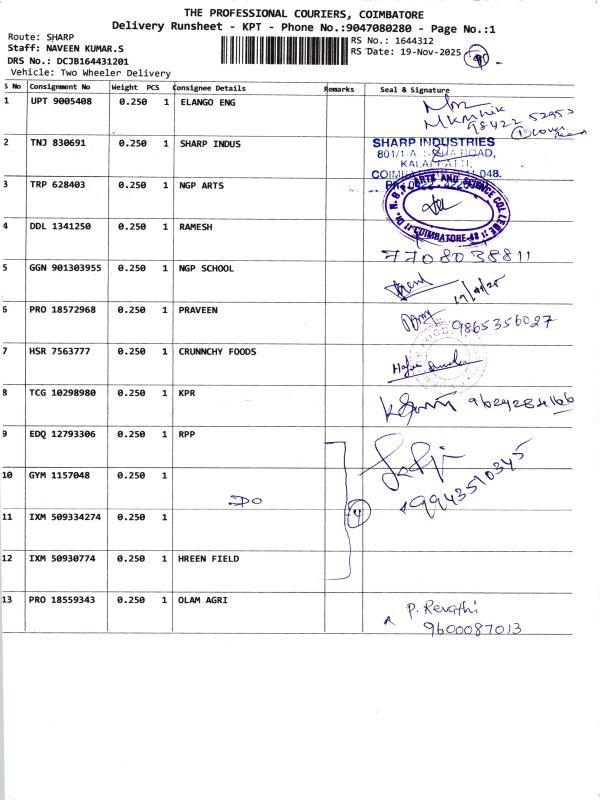 THE PROFESSIONAL COURIERS, COIMBATORE
Delivery Runsheet - KPT - Phone No.:9047080280 - Page No.:1
Route: SHARP
Staff: NAVEEN KUMAR.S
DRS No.: DCJB164431201
Vehicle: Two Wheeler Delivery
RS No.: 1644312
RS Date: 19-Nov-2025
S No Consignment No Weight PCS Consignee Details Remarks Seal & Signature
1 UPT 9005408 0.250 1 ELANGO ENG
98422 52953
2 TNJ 830691 0.250 1 SHARP INDUS
SHARP INDUSTRIES
3 TRP 628403 0.250 1 NGP ARTS
Dr. N.G.P. ARTS AND SCIENCE COLLEGE
COIMBATORE-48
4 DDL 1341250 0.250 1 RAMESH
7708038811
5 GGN 901303955 0.250 1 NGP SCHOOL
6 PRO 18572968 0.250 1 PRAVEEN
9865356027
7 HSR 7563777 0.250 1 CRUNNCHY FOODS
8 TCG 10298980 0.250 1 KPR
9629284166
9 EDQ 12793306 0.250 1 RPP
9943510345
10 GYM 1157048 0.250 1
DO
4
11 IXM 509334274 0.250 1
12 IXM 50930774 0.250 1 HREEN FIELD
13 PRO 18559343 0.250 1 OLAM AGRI
P. Revathi
9600087013